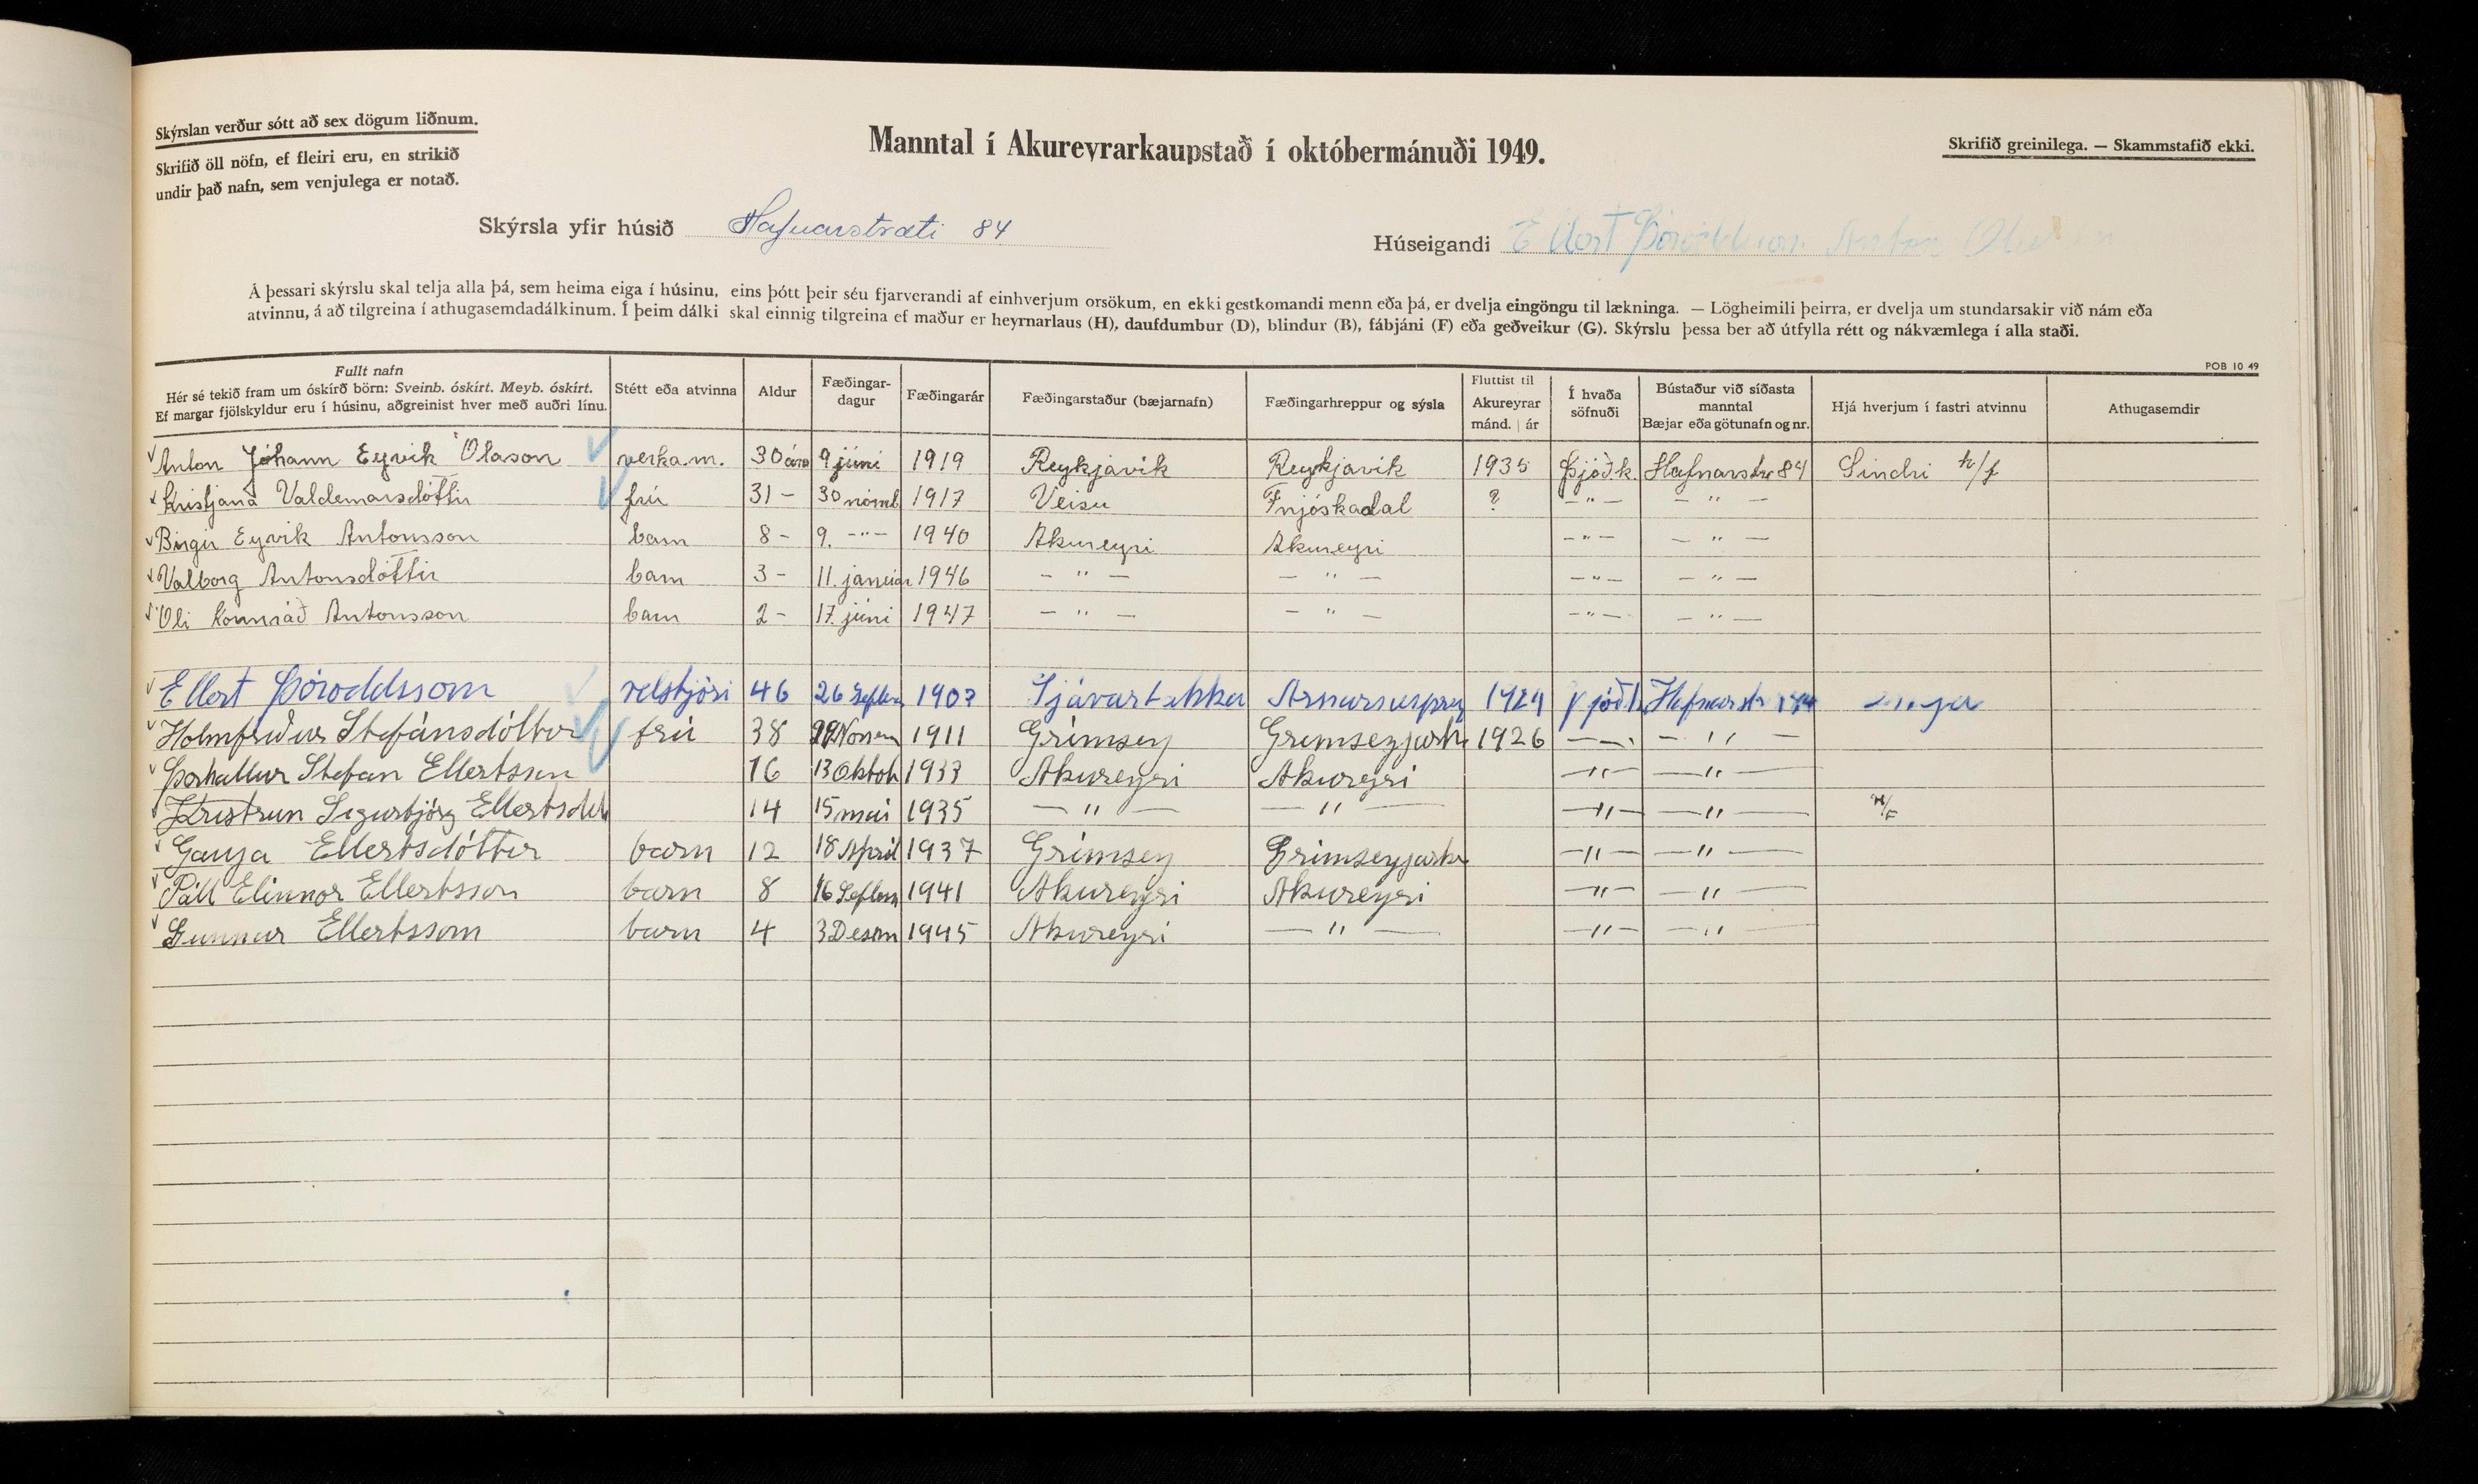 Skýrslan verður sótt að sex dögum liðnum.
Skrifið öll nöfn, ef fleiri eru, en strikið
undir það nafn, sem venjulega er notað.
Manntal í Akureyrarkaupstað í októbermánuði 1949.
Skrifið greinilega. — Skammstafið ekki.
Skýrsla yfir húsið Hafnarstræti 84
Húseigandi Ellert Þóroddsson Anton
Á þessari skýrslu skal telja alla þá, sem heima eiga í húsinu, eins þótt þeir séu fjarverandi af einhverjum orsökum, en ekki gestkomandi menn eða þá, er dvelja eingöngu til lækninga. — Lögheimili þeirra, er dvelja um stundarsakir við nám eða
atvinnu, á að tilgreina í athugasemdadálkinum. Í þeim dálki skal einnig tilgreina ef maður er heyrnarlaus (H), daufdumbur (D), blindur (B), fábjáni (F) eða geðveikur (G). Skýrslu þessa ber að útfylla rétt og nákvæmlega í alla staði.
POB 10 49
Fullt nafn
Hér sé tekið fram um óskírð börn: Sveinb. óskírt. Meyb. óskírt.
Ef margar fjölskyldur eru í húsinu, aðgreinist hver með auðri línu.
Stétt eða atvinna
Aldur
Fæðingar-
dagur
Fæðingarár
Fæðingarstaður (bæjarnafn)
Fæðingarhreppur og sýsla
Fluttist til
Akureyrar
mánd. | ár
Í hvaða
söfnuði
Bústaður við síðasta
manntal
Bæjar eða götunafn og nr.
Hjá hverjum í fastri atvinnu
Athugasemdir
Anton Jóhann Eyvik Ólason verkam. 30 ára 9 júní 1919 Reykjavík Reykjavík 1935 Þjóðk. Hafnarstr 84 Sindri h/f
Kristjana Valdemarsdóttir frú 31 — 30 nóvmb 1917 Veisu Fnjóskadal ? — " — — " —
Birgir Eyvik Antonsson barn 8 - 9. — " — 1940 Akureyri Akureyri — " — — " —
Valborg Antonsdóttir barn 3 - 11. janúar 1946 — " — — " — — " — — " —
Óli Konnráð Antonsson barn 2 - 17. júní 1947 — " — — " — — " — — " —
Ellert Þóroddsson velstjóri 46 26 Septem 1903 1929 Þjóðk Hafnarstr
Holmfriður Stefánsdóttir frú 38 Novem 1911 Grímsey 1926 — " — — " —
Þorhallur Stefan Ellertsson 16 13 Oktob 1933 Akureyri Akureyri — " — — " —
Kristrun Sigurbjörg Ellertsdótt 14 15 mai 1935 — " — — " — — " — — " — H/F
Ganja Ellertsdóttir barn 12 18 April 1937 Grímsey — " — — " —
Páll Elinnor Ellertsson barn 8 16 Septem 1941 Akureyri Akureyri — " — — " —
Gunnar Ellertsson barn 4 3 Desem 1945 Akureyri — " — — " — — " —